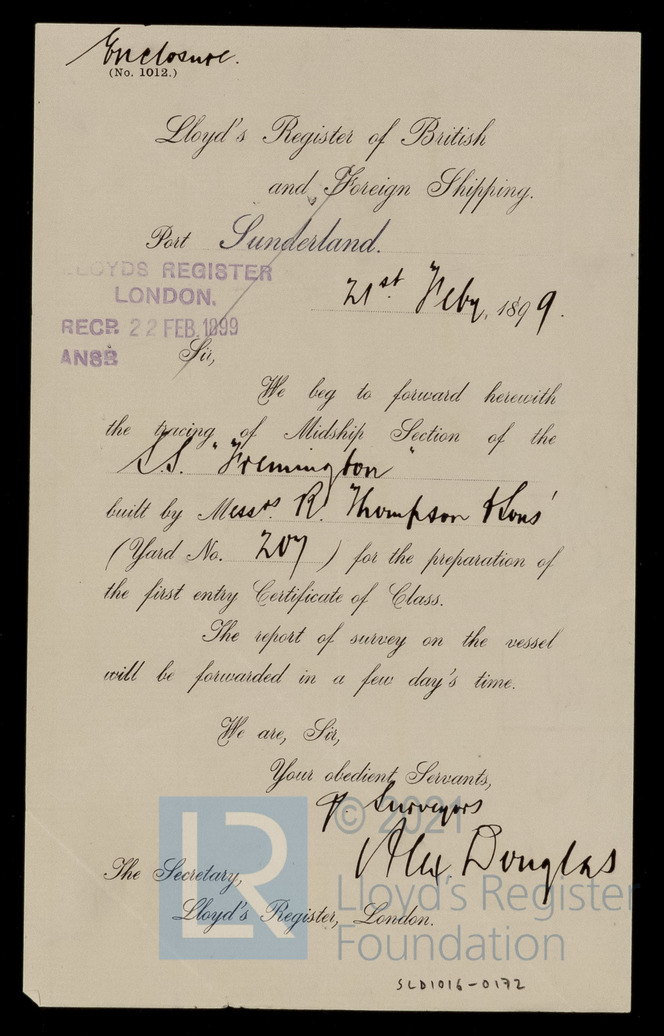 Enclosure.
(No. 1012.)
Lloyd's Register of British
and Foreign Shipping.
Port Sunderland.
LLOYDS REGISTER
LONDON.
RECD. 22 FEB. 1899
ANSD
21st Feby. 1899.
Sir,
We beg to forward herewith
the tracing of Midship Section of the
S.S. "Fremington"
built by Messrs. R. Thompson & Sons'
(Yard No. 207) for the preparation of
the first entry Certificate of Class.
The report of survey on the vessel
will be forwarded in a few day's time.
We are, Sir,
Your obedient Servants,
p. Surveyors
Alex. Douglas
The Secretary,
Lloyd's Register, London.
LR
© 2021
Lloyd's Register
Foundation
SLD1016-0172